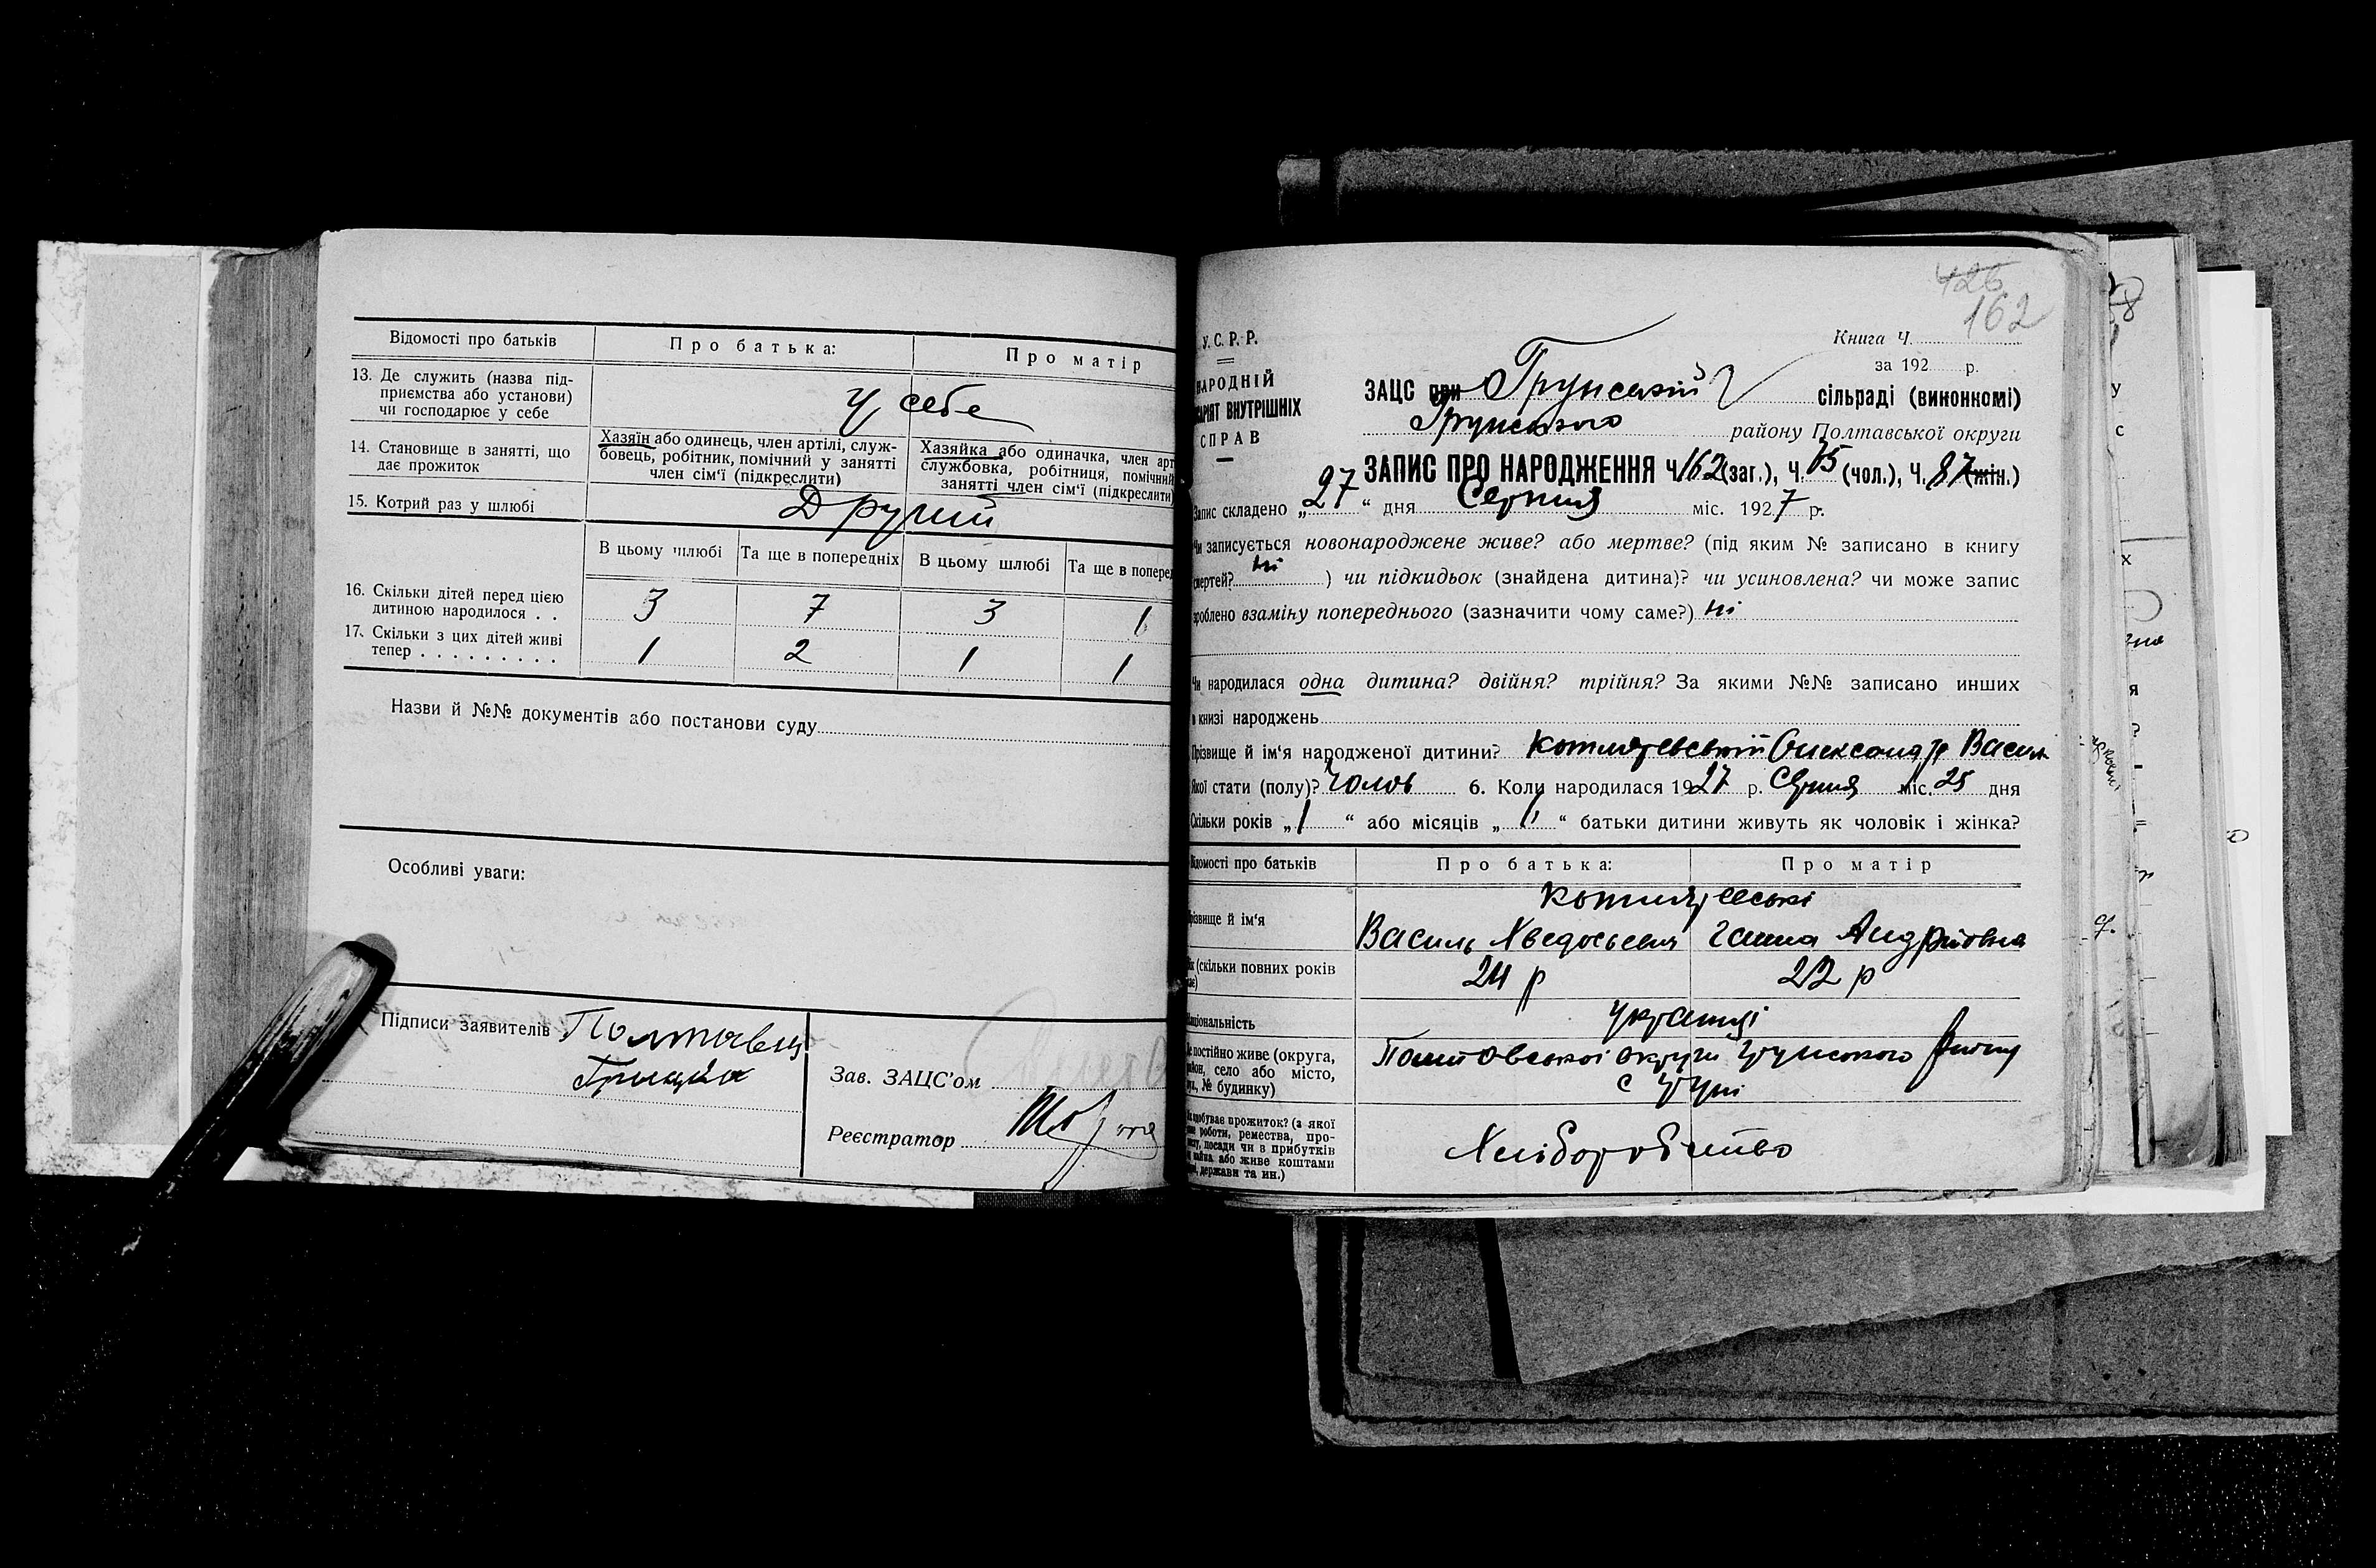 Відомості про батьків
Про батька:
Про матір
13. Де служить (назва під-
приємства або установи)
чи господарює у себе
у себе
14. Становище в занятті, що
дає прожиток
Хазяїн або одинець, член артілі, служ-
бовець, робітник, помічний у занятті
член сім'ї (підкреслити)
Хазяйка або одиначка, член арт
службовка, робітниця, помічний
занятті член сім'ї (підкреслити)
15. Котрий раз у шлюбі
Другий
В цьому шлюбі
Та ще в попередніх
В цьому шлюбі
Та ще в поперед
16. Скільки дітей перед цією
дитиною народилося . .
3 7 3 1
17. Скільки з цих дітей живі
тепер . . . . . . . . .
1 2 1 1
Назви й №№ документів або постанови суду
Особливі уваги:
Підписи заявителів
Зав. ЗАЦС'ом
Реєстратор
426
162
У.С.Р.Р.
НАРОДНІЙ
ВНУТРІШНІХ
СПРАВ
Книга Ч.
за 192 р.
ЗАЦС при Грунський сільраді (виконкомі)
Грунського району Полтавської округи
ЗАПИС ПРО НАРОДЖЕННЯ Ч. 162 (заг.), Ч. 75 (чол.), Ч. 87 (жін.)
Запис складено „27“ дня Серпня міс. 1927 р.
Чи записується новонароджене живе? або мертве? (під яким № записано в книгу
смертей? ні ) чи підкидьок (знайдена дитина)? чи усиновлена? чи може запис
зроблено взаміну попереднього (зазначити чому саме?) ні
Чи народилася одна дитина? двійня? трійня? За якими №№ записано инших
в книзі народжень
Прізвище й ім'я народженої дитини? Котляревський Олександр Васил
Якої стати (полу)? Чолов 6. Коли народилася 1927 р. Серпня міс. 25 дня
Скільки років „1“ або місяців „ “ батьки дитини живуть як чоловік і жінка?
Відомості про батьків
Про батька:
Про матір
Прізвище й ім'я
Котляревські
Василь Хведосьевич
Ганна Андріовна
(скільки повних років
24 р
22 р
Національність
Українці
Де постійно живе (округа,
район, село або місто,
№ будинку)
Полтавської округи Грунського
с Груні
здобуває прожиток? (з якої
роботи, ремества, про-
посади чи в прибутків
майна або живе коштами
держави та ин.)
Хліборобство